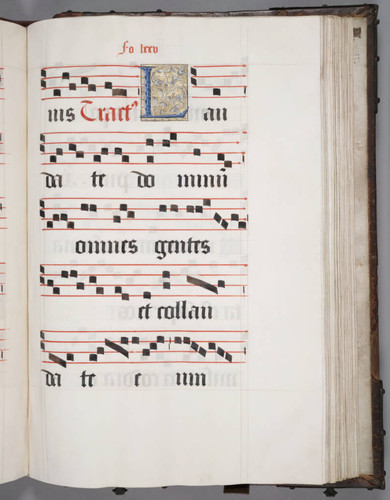 fo lxxv
nis Tract⁹ L au
da te do minū
omnes gentes
et collau
da te e um